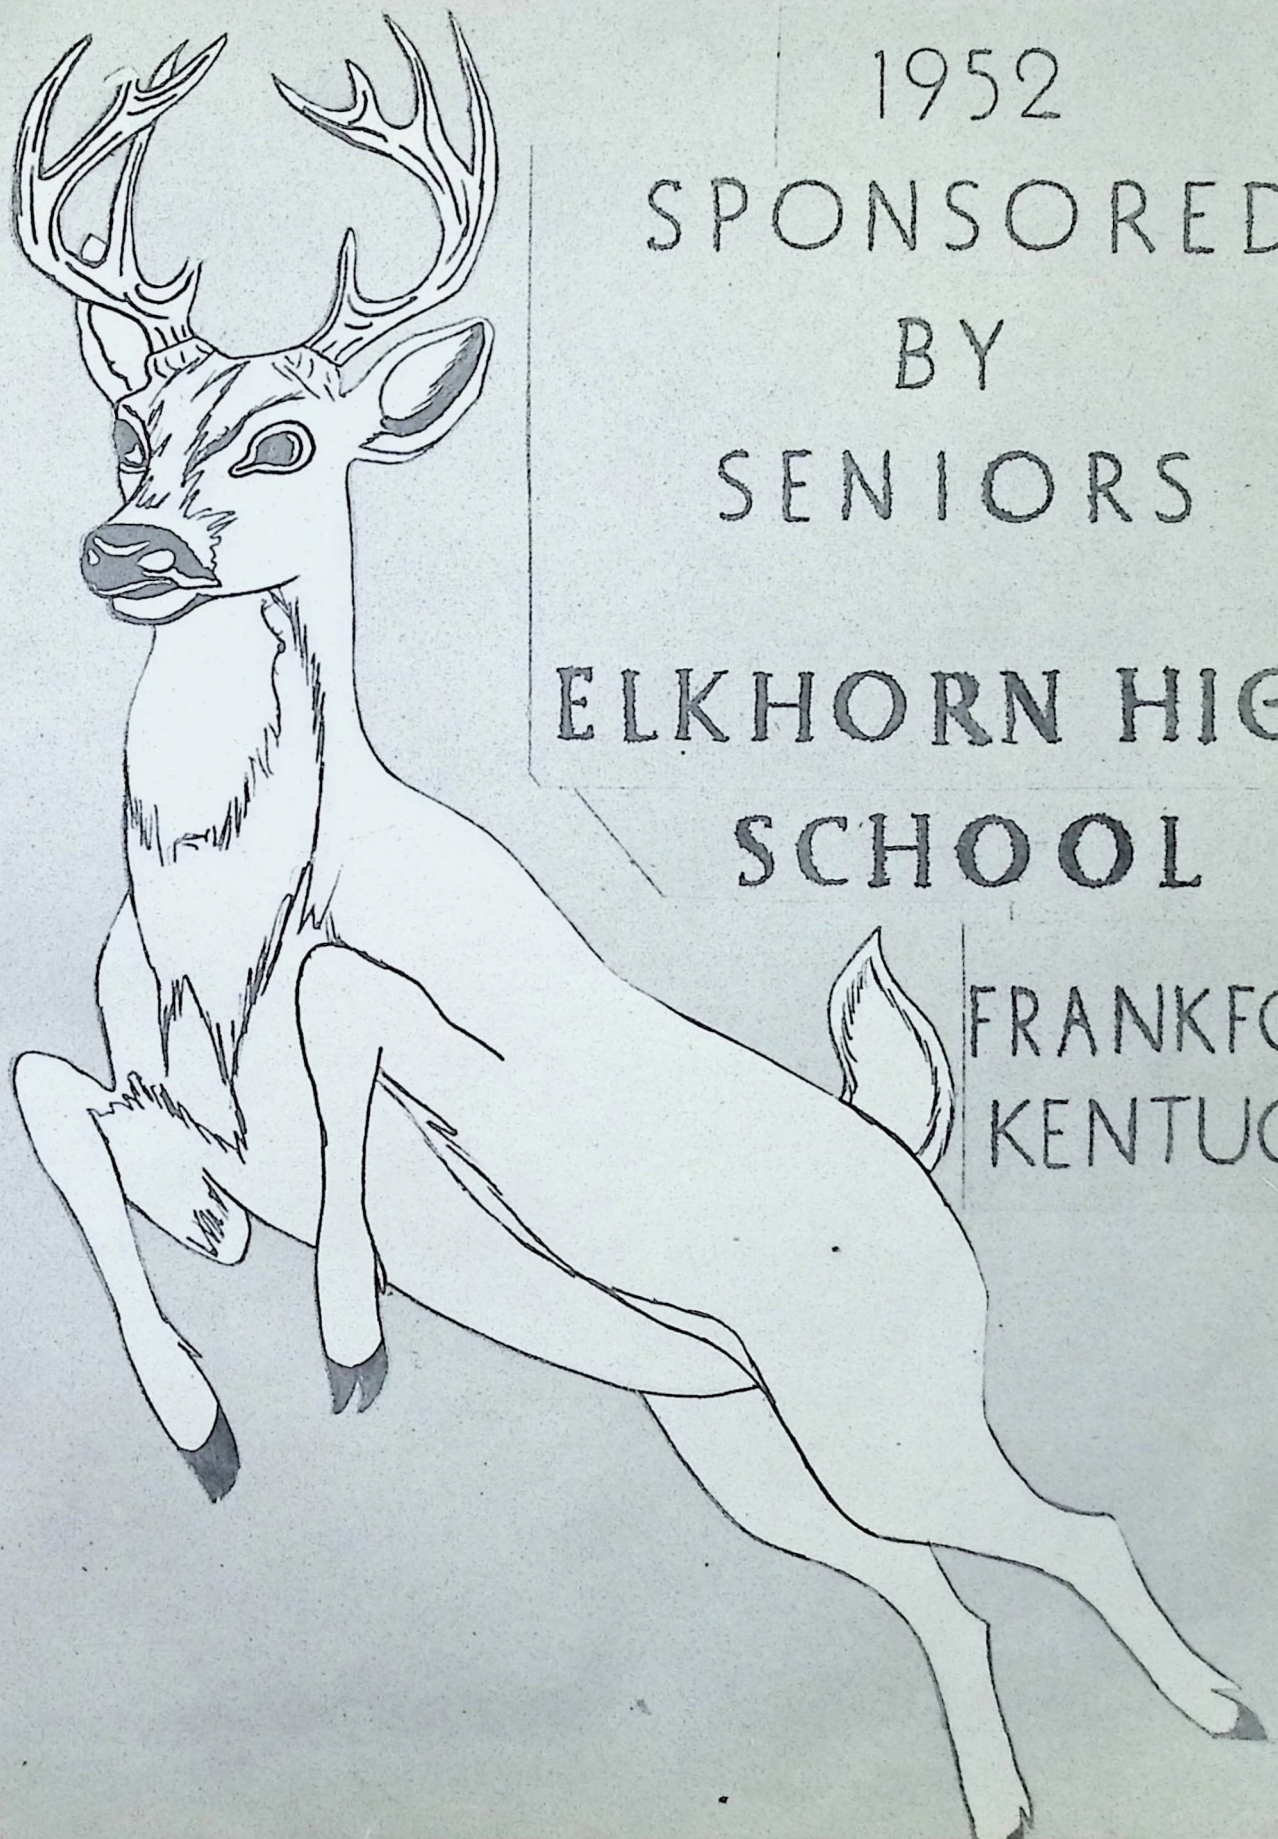 1952
SPONSORED
BY
SENIORS
ELKHORN HIG
SCHOOL
FRANKFO
KENTUC